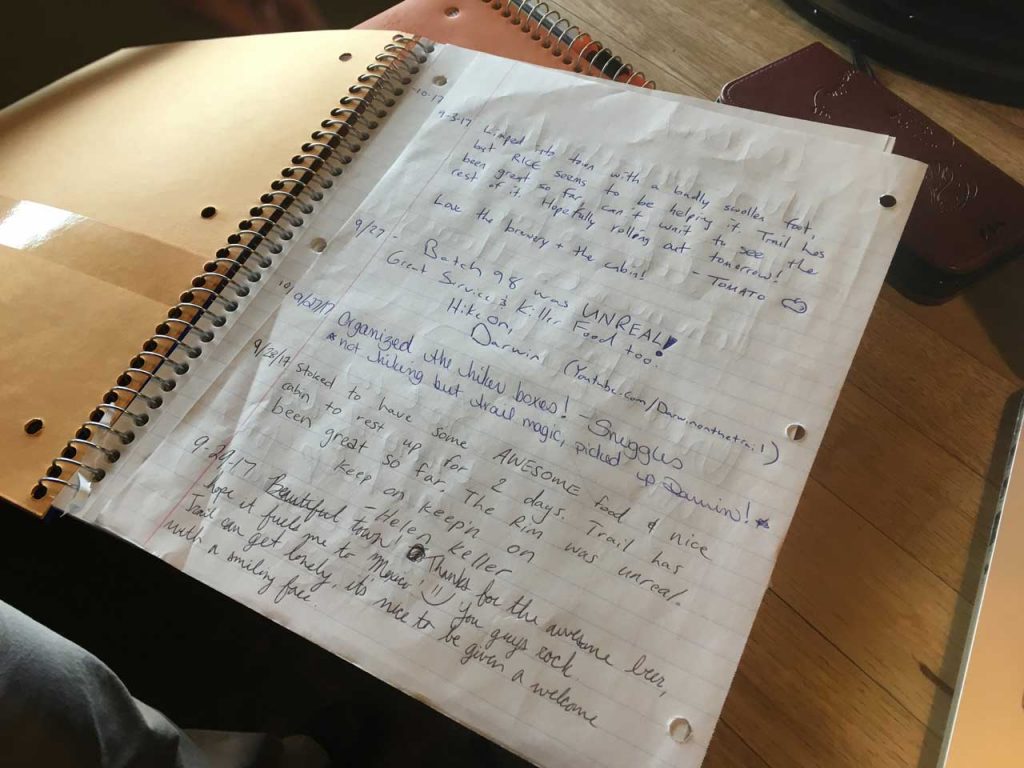 -10-17
9-3-17 Limped into town with a badly swollen foot,
but RICE seems to be helping it. Trail has
been great so far, can't wait to see the
rest of it. Hopefully rolling out tomorrow!
Love the brewery + the cabin! - TOMATO
9/27 - Batch 98 was UNREAL!
Great Service & Killer Food too.
Hike on,
Darwin (Youtube.com/Darwinonthetrail)
10/
9/27/17 Organized the hiker boxes! - Snuggus
*not hiking but trail magic, picked up Darwin!*
9/28/17 Stoked to have some AWESOME food & nice
cabin to rest up for 2 days. Trail has
been great so far. The Rim was unreal.
keep on keep'n on
- Helen Keller
9-29-17 Beautiful town! Thanks for the awesome beer,
hope it fuels me to Mexico! you guys rock.
Trail can get lonely, it's nice to be given a welcome
with a smiling face.